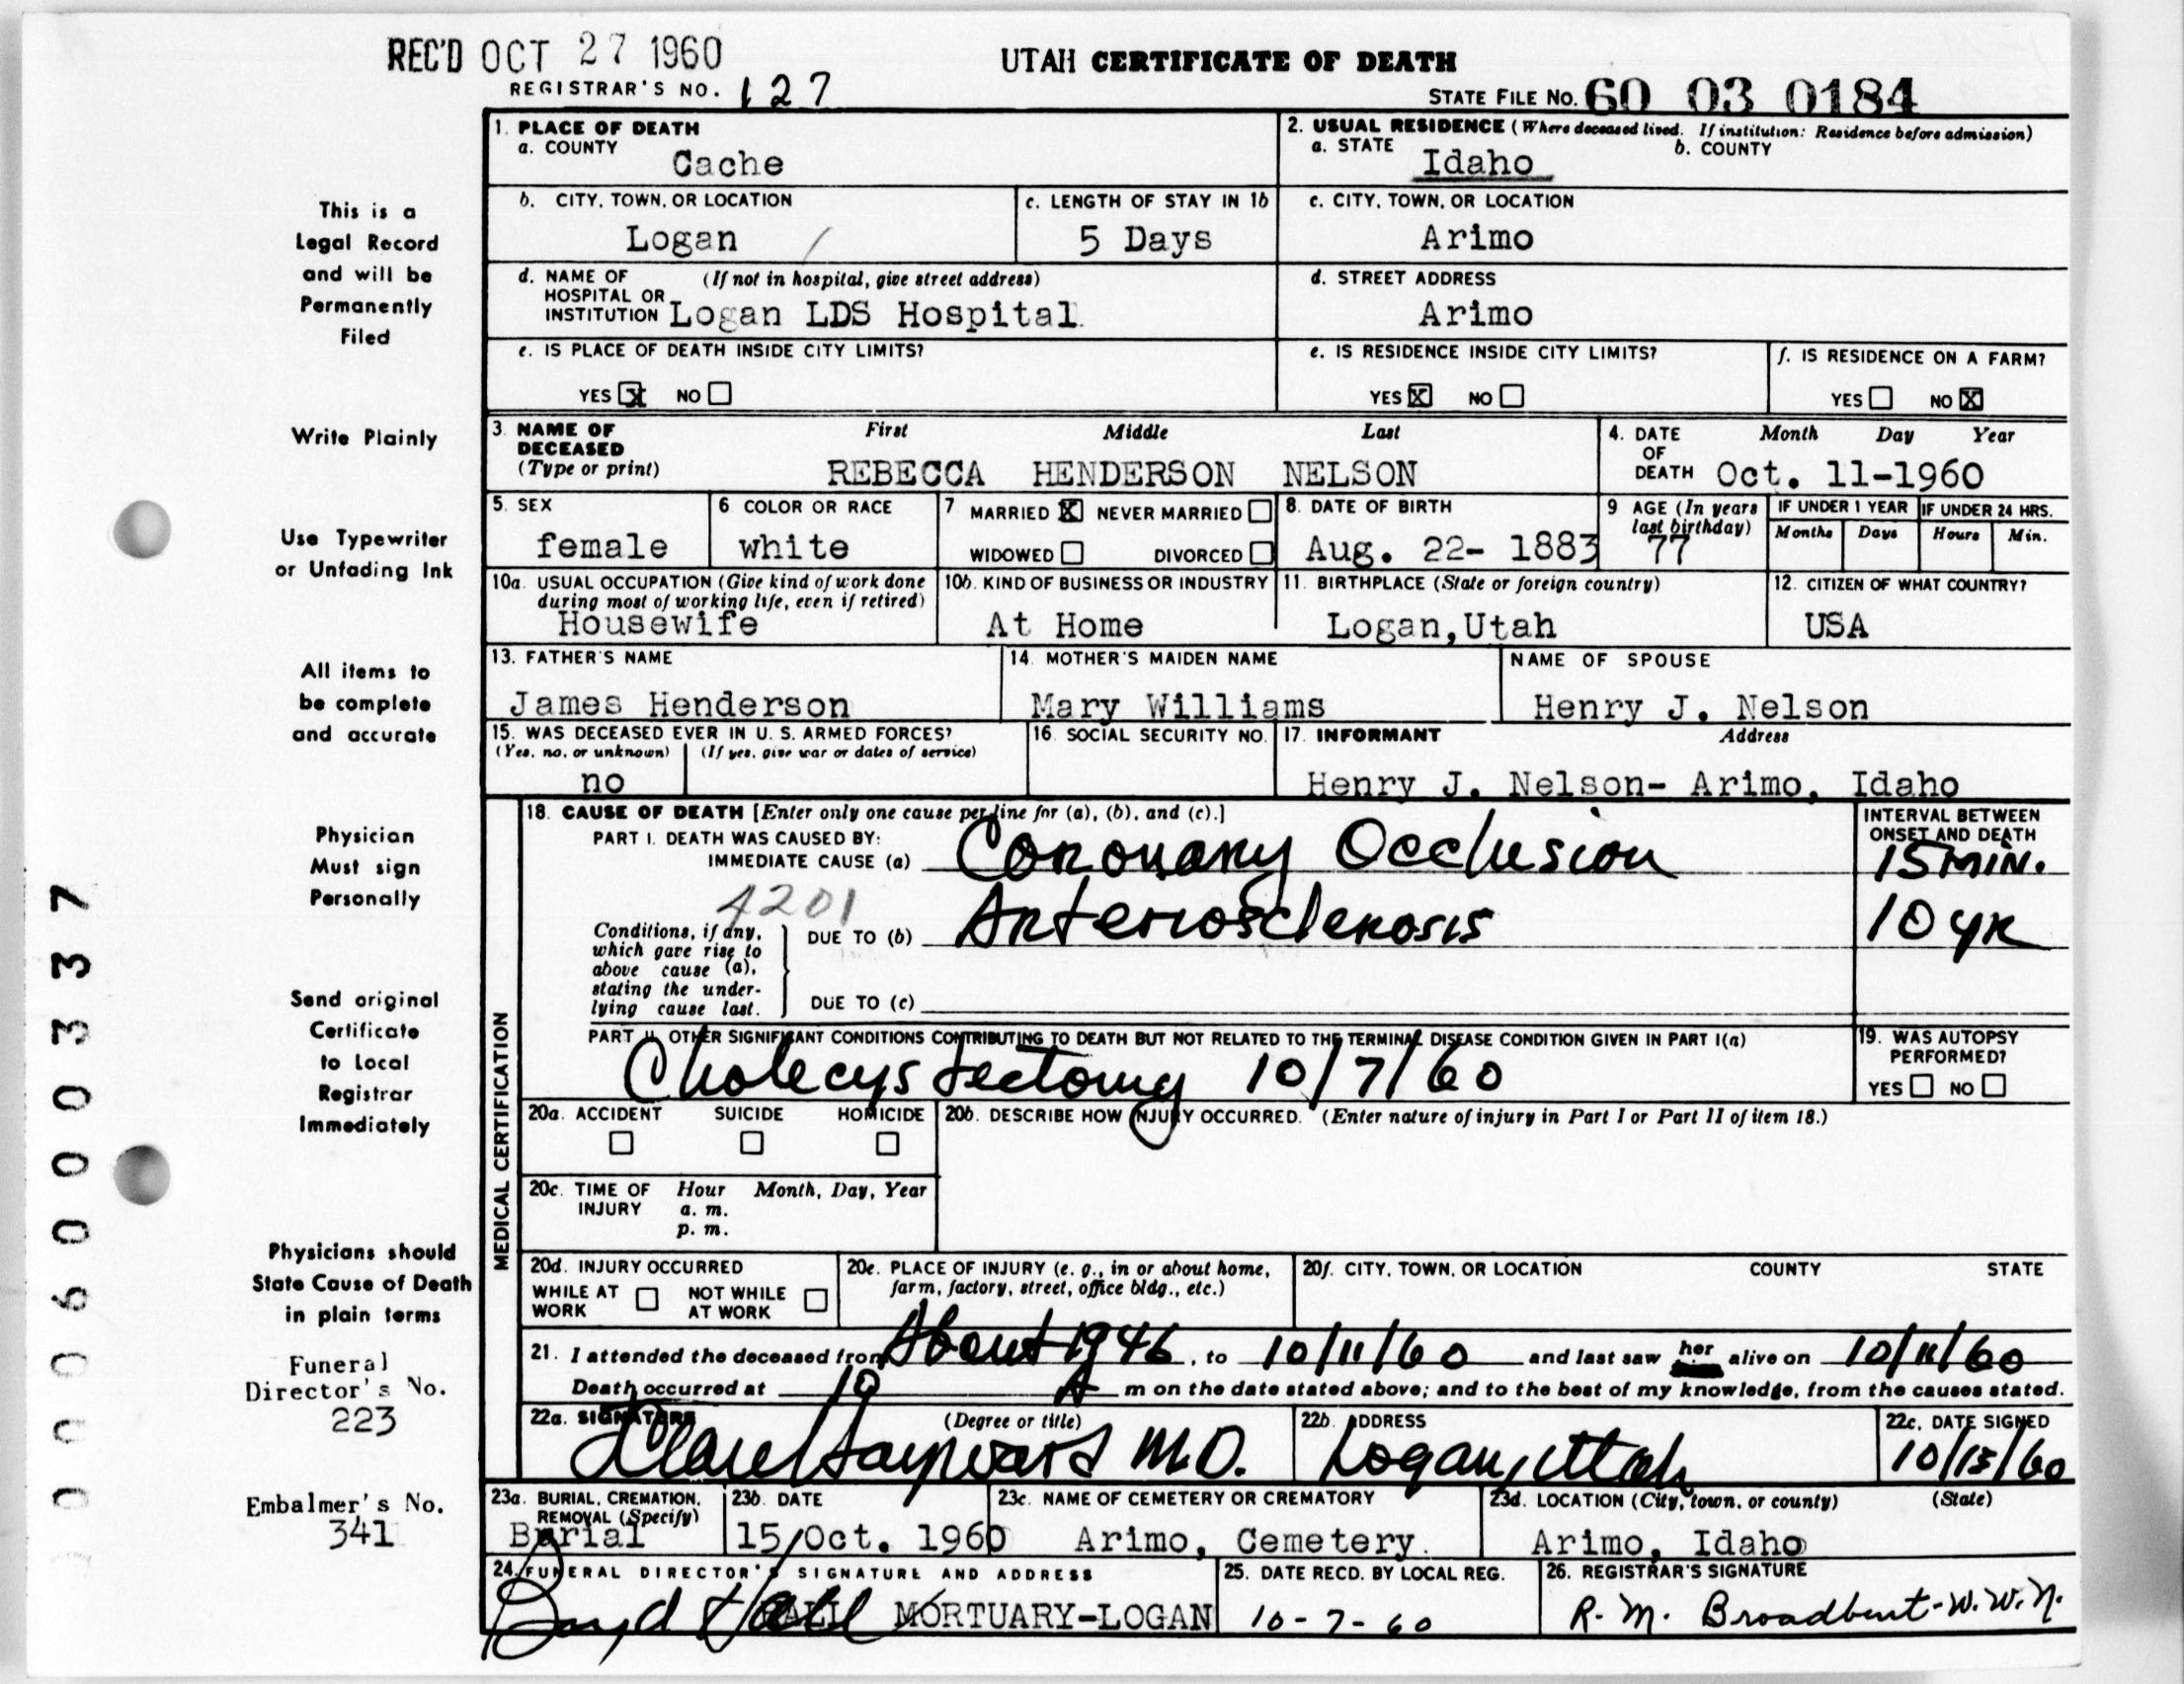 REC'D OCT 27 1960
UTAH CERTIFICATE OF DEATH
REGISTRAR'S NO. 127
STATE FILE NO. 60 03 0184
1. PLACE OF DEATH
a. COUNTY
Cache
2. USUAL RESIDENCE (Where deceased lived. If institution: Residence before admission)
a. STATE b. COUNTY
Idaho
b. CITY, TOWN, OR LOCATION
Logan
c. LENGTH OF STAY IN 1b
5 Days
c. CITY, TOWN, OR LOCATION
Arimo
d. NAME OF (If not in hospital, give street address)
HOSPITAL OR
INSTITUTION Logan LDS Hospital
d. STREET ADDRESS
Arimo
e. IS PLACE OF DEATH INSIDE CITY LIMITS?
YES X NO
e. IS RESIDENCE INSIDE CITY LIMITS?
YES X NO
f. IS RESIDENCE ON A FARM?
YES NO X
3. NAME OF DECEASED
(Type or print)
First Middle Last
REBECCA HENDERSON NELSON
4. DATE OF DEATH
Month Day Year
Oct. 11-1960
5. SEX
female
6 COLOR OR RACE
white
7 MARRIED X NEVER MARRIED
WIDOWED DIVORCED
8. DATE OF BIRTH
Aug. 22- 1883
9 AGE (In years
last birthday)
77
IF UNDER 1 YEAR
Months Days
IF UNDER 24 HRS.
Hours Min.
10a. USUAL OCCUPATION (Give kind of work done
during most of working life, even if retired)
Housewife
10b. KIND OF BUSINESS OR INDUSTRY
At Home
11. BIRTHPLACE (State or foreign country)
Logan,Utah
12. CITIZEN OF WHAT COUNTRY?
USA
13. FATHER'S NAME
James Henderson
14. MOTHER'S MAIDEN NAME
Mary Williams
NAME OF SPOUSE
Henry J. Nelson
15. WAS DECEASED EVER IN U. S. ARMED FORCES?
(Yes, no, or unknown) (If yes, give war or dates of service)
no
16. SOCIAL SECURITY NO.
17. INFORMANT Address
Henry J. Nelson- Arimo, Idaho
MEDICAL CERTIFICATION
18. CAUSE OF DEATH [Enter only one cause per line for (a), (b), and (c).]
PART I. DEATH WAS CAUSED BY:
IMMEDIATE CAUSE (a) Coronary Occlusion
INTERVAL BETWEEN
ONSET AND DEATH
15 MIN.
4201
Conditions, if any,
which gave rise to
above cause (a),
stating the under-
lying cause last.
DUE TO (b) Arteriosclerosis
10 YR
DUE TO (c)
PART II. OTHER SIGNIFICANT CONDITIONS CONTRIBUTING TO DEATH BUT NOT RELATED TO THE TERMINAL DISEASE CONDITION GIVEN IN PART I(a)
Cholecystectomy 10/7/60
19. WAS AUTOPSY
PERFORMED?
YES NO
20a. ACCIDENT SUICIDE HOMICIDE
20b. DESCRIBE HOW INJURY OCCURRED. (Enter nature of injury in Part I or Part II of item 18.)
20c. TIME OF INJURY
Hour Month, Day, Year
a. m.
p. m.
20d. INJURY OCCURRED
WHILE AT WORK NOT WHILE AT WORK
20e. PLACE OF INJURY (e. g., in or about home,
farm, factory, street, office bldg., etc.)
20f. CITY, TOWN, OR LOCATION COUNTY STATE
21. I attended the deceased from About 1946, to 10/11/60 and last saw her alive on 10/11/60
Death occurred at 10 A m on the date stated above; and to the best of my knowledge, from the causes stated.
22a. SIGNATURE (Degree or title)
Hayward M.D.
22b. ADDRESS
Logan, Utah
22c. DATE SIGNED
10/15/60
23a. BURIAL, CREMATION,
REMOVAL (Specify)
Burial
23b. DATE
15 Oct. 1960
23c. NAME OF CEMETERY OR CREMATORY
Arimo, Cemetery.
23d. LOCATION (City, town, or county) (State)
Arimo, Idaho
24. FUNERAL DIRECTOR'S SIGNATURE AND ADDRESS
Boyd Hall HALL MORTUARY-LOGAN
25. DATE RECD. BY LOCAL REG.
10-7-60
26. REGISTRAR'S SIGNATURE
R. M. Broadbent-W.W.N.
This is a
Legal Record
and will be
Permanently
Filed
Write Plainly
Use Typewriter
or Unfading Ink
All items to
be complete
and accurate
Physician
Must sign
Personally
Send original
Certificate
to Local
Registrar
Immediately
Physicians should
State Cause of Death
in plain terms
Funeral
Director's No.
223
Embalmer's No.
341